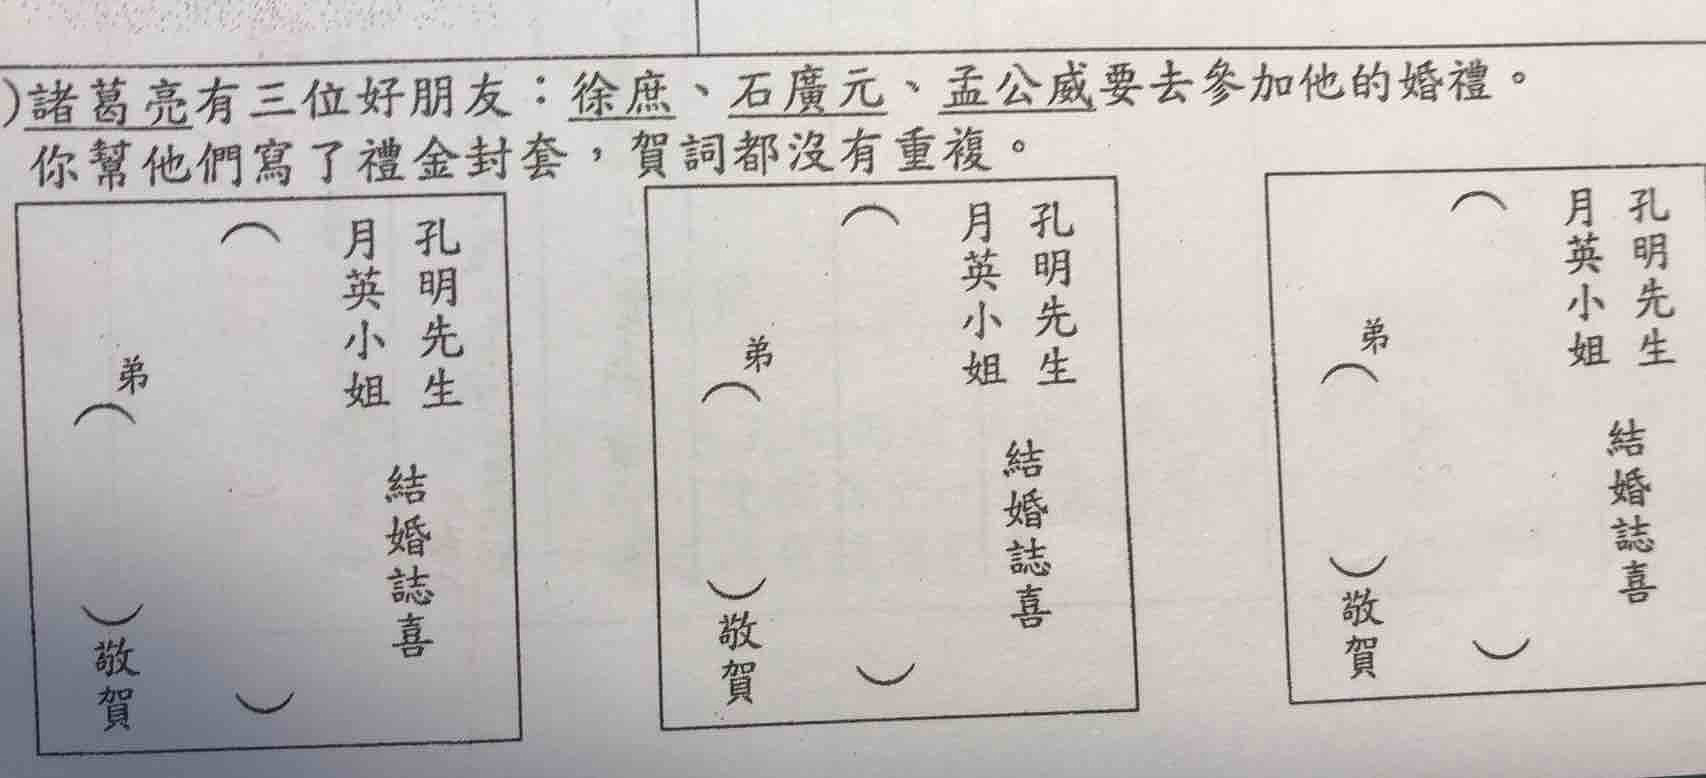 ）諸葛亮有三位好朋友：徐庶、石廣元、孟公威要去參加他的婚禮。
你幫他們寫了禮金封套，賀詞都沒有重複。
孔明先生
月英小姐
結婚誌喜
（　　）
弟（　　）敬賀
孔明先生
月英小姐
結婚誌喜
（　　）
弟（　　）敬賀
孔明先生
月英小姐
結婚誌喜
（　　）
弟（　　）敬賀